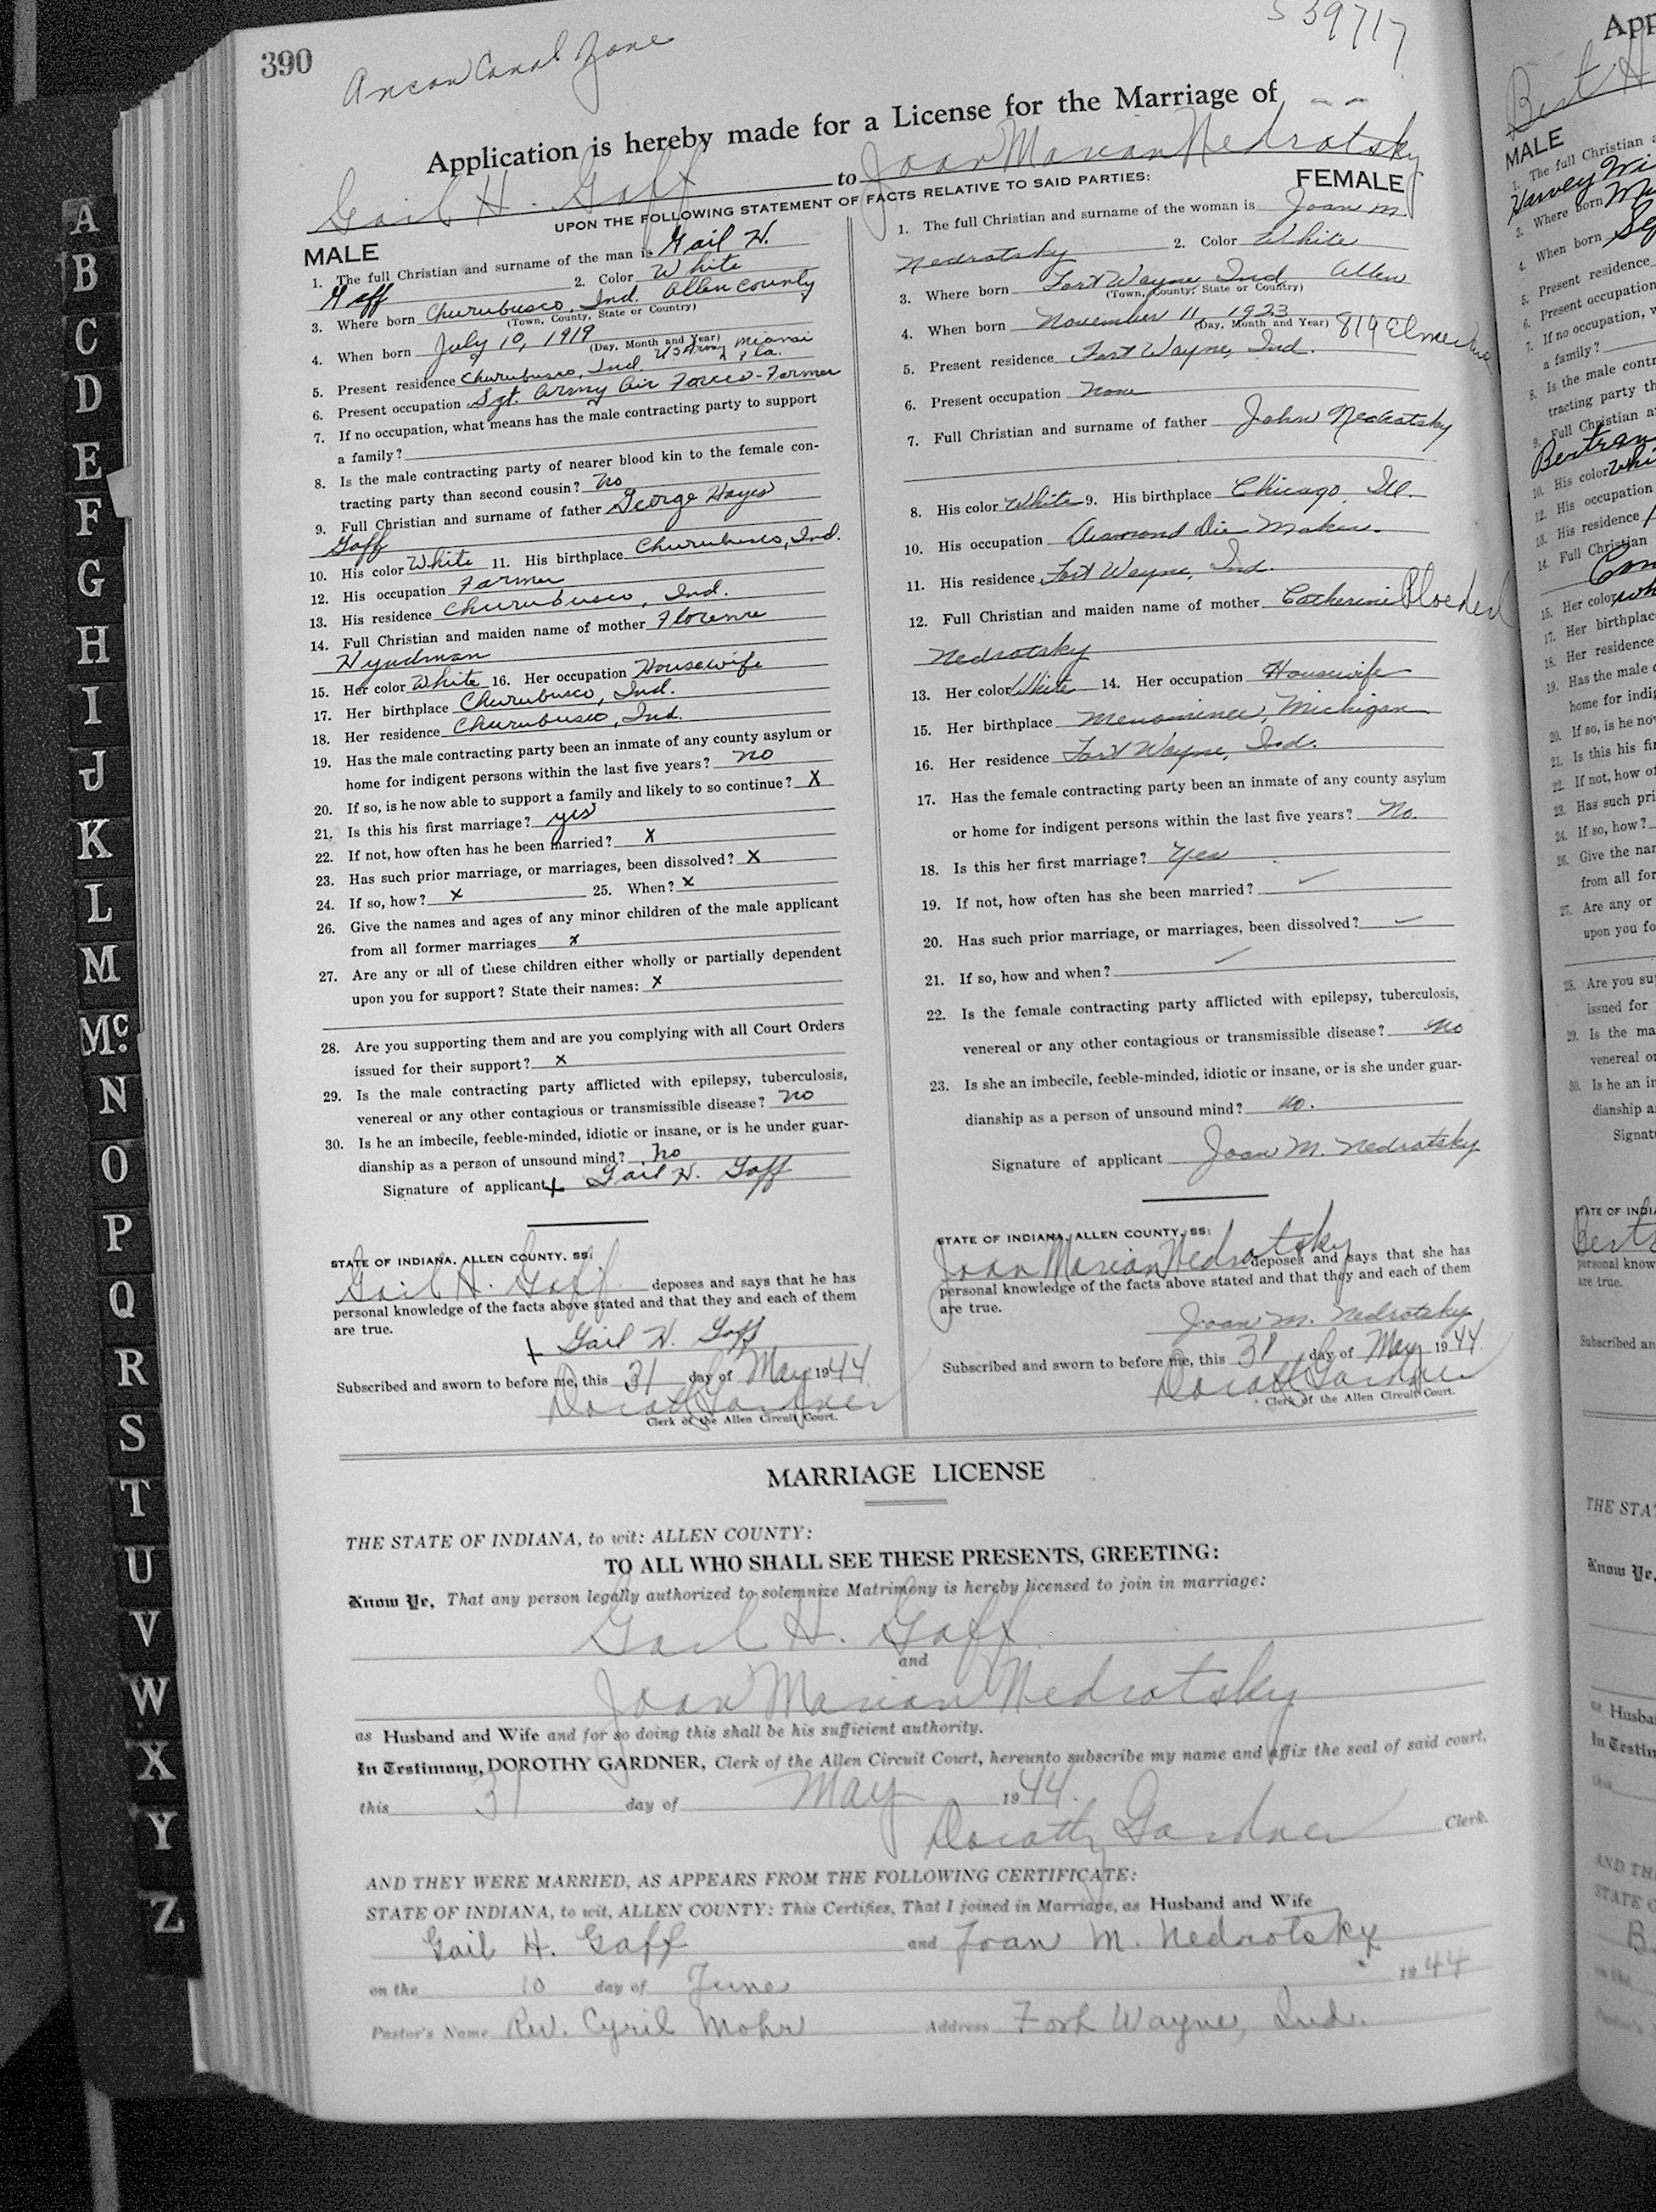 390
Ancon Canal Zone
539717
Application is hereby made for a License for the Marriage of
Gail H. Gaff to Joan Marian Nedrotsky
UPON THE FOLLOWING STATEMENT OF FACTS RELATIVE TO SAID PARTIES:
MALE
1. The full Christian and surname of the man is Gail H.
Gaff 2. Color White
3. Where born Churubusco, Ind. Allen County
(Town, County, State or Country)
4. When born July 10, 1919
(Day, Month and Year)
5. Present residence Churubusco, Ind. US Army Miami Fla.
6. Present occupation Sgt. Army Air Forces - Farmer
7. If no occupation, what means has the male contracting party to support
a family?
8. Is the male contracting party of nearer blood kin to the female con-
tracting party than second cousin? No
9. Full Christian and surname of father George Hayes
Gaff
10. His color White 11. His birthplace Churubusco, Ind.
12. His occupation Farmer
13. His residence Churubusco, Ind.
14. Full Christian and maiden name of mother Florence
Hyndman
15. Her color White 16. Her occupation Housewife
17. Her birthplace Churubusco, Ind.
18. Her residence Churubusco, Ind.
19. Has the male contracting party been an inmate of any county asylum or
home for indigent persons within the last five years? No
20. If so, is he now able to support a family and likely to so continue? X
21. Is this his first marriage? yes
22. If not, how often has he been married? X
23. Has such prior marriage, or marriages, been dissolved? X
24. If so, how? X 25. When? X
26. Give the names and ages of any minor children of the male applicant
from all former marriages X
27. Are any or all of these children either wholly or partially dependent
upon you for support? State their names: X
28. Are you supporting them and are you complying with all Court Orders
issued for their support? X
29. Is the male contracting party afflicted with epilepsy, tuberculosis,
venereal or any other contagious or transmissible disease? No
30. Is he an imbecile, feeble-minded, idiotic or insane, or is he under guar-
dianship as a person of unsound mind? No
Signature of applicant X Gail H. Gaff
STATE OF INDIANA, ALLEN COUNTY, SS:
Gail H. Gaff deposes and says that he has
personal knowledge of the facts above stated and that they and each of them
are true.
X Gail H. Gaff
Subscribed and sworn to before me, this 31 day of May 1944
Dorothy Gardner
Clerk of the Allen Circuit Court.
FEMALE
1. The full Christian and surname of the woman is Joan M.
Nedrotsky 2. Color White
3. Where born Fort Wayne, Ind Allen
(Town, County, State or Country)
4. When born November 11 1923
(Day, Month and Year) 819 Elmer Ave
5. Present residence Fort Wayne, Ind.
6. Present occupation None
7. Full Christian and surname of father John Nedrotsky
8. His color White 9. His birthplace Chicago, Ill.
10. His occupation Diamond Die Maker
11. His residence Fort Wayne, Ind.
12. Full Christian and maiden name of mother Catherine
Nedrotsky
13. Her color White 14. Her occupation Housewife
15. Her birthplace Menominee, Michigan
16. Her residence Fort Wayne, Ind.
17. Has the female contracting party been an inmate of any county asylum
or home for indigent persons within the last five years? No.
18. Is this her first marriage? Yes
19. If not, how often has she been married?
20. Has such prior marriage, or marriages, been dissolved?
21. If so, how and when?
22. Is the female contracting party afflicted with epilepsy, tuberculosis,
venereal or any other contagious or transmissible disease? No
23. Is she an imbecile, feeble-minded, idiotic or insane, or is she under guar-
dianship as a person of unsound mind? No.
Signature of applicant Joan M. Nedrotsky
STATE OF INDIANA, ALLEN COUNTY, SS:
Joan Marian Nedrotsky deposes and says that she has
personal knowledge of the facts above stated and that they and each of them
are true.
Joan M. Nedrotsky
Subscribed and sworn to before me, this 31 day of May 1944
Dorothy Gardner
Clerk of the Allen Circuit Court.
MARRIAGE LICENSE
THE STATE OF INDIANA, to wit: ALLEN COUNTY:
TO ALL WHO SHALL SEE THESE PRESENTS, GREETING:
Know Ye, That any person legally authorized to solemnize Matrimony is hereby licensed to join in marriage:
Gail H. Gaff
and
Joan Marian Nedrotsky
as Husband and Wife and for so doing this shall be his sufficient authority.
In Testimony, DOROTHY GARDNER, Clerk of the Allen Circuit Court, hereunto subscribe my name and affix the seal of said court,
this 31 day of May 1944.
Dorothy Gardner Clerk.
AND THEY WERE MARRIED, AS APPEARS FROM THE FOLLOWING CERTIFICATE:
STATE OF INDIANA, to wit, ALLEN COUNTY: This Certifies, That I joined in Marriage, as Husband and Wife
Gail H. Gaff and Joan M. Nedrotsky
on the 10 day of June 1944
Pastor's Name Rev. Cyril Mohr Address Fort Wayne, Ind.
A
B
C
D
E
F
G
H
I
J
K
L
M
Mc
N
O
P
Q
R
S
T
U
V
W
X
Y
Z